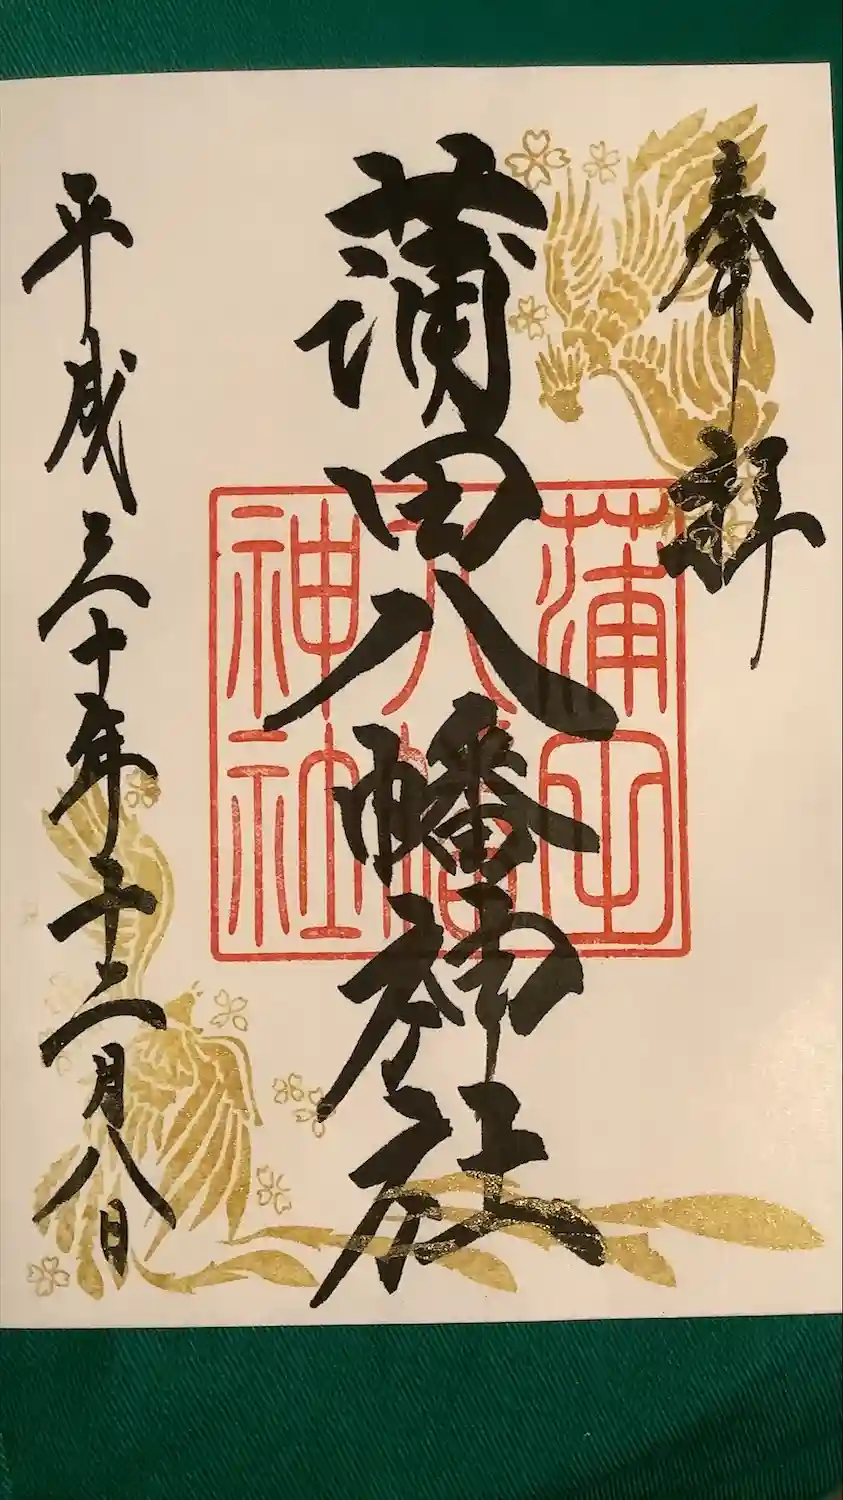 奉拝
蒲田八幡神社
蒲田
八幡
神社
平成三十年十二月八日